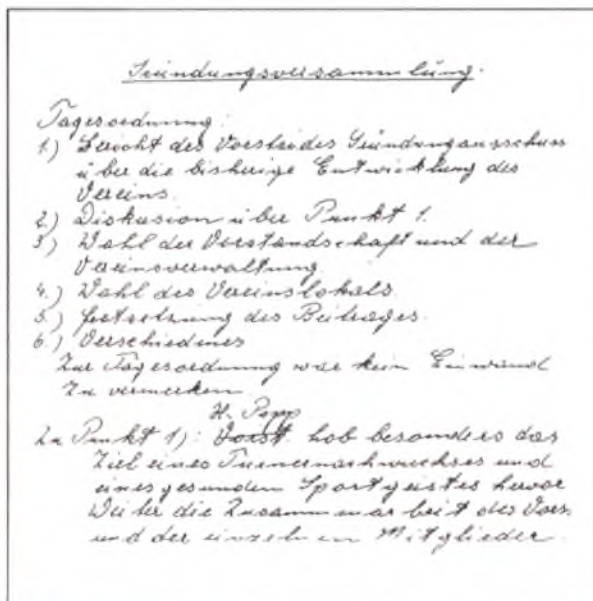 Gründungsversammlung.
Tagesordnung
1.) Bericht des Vorstandes Gründungausschuss
über die bisherige Entwicklung des
Vereins.
2.) Diskusion über Punkt 1.
3.) Wahl der Vorstandschaft und der
Vereinsverwaltung
4.) Wahl des Vereinslokals
5.) Festsetzung des Beitrages.
6.) Verschiedenes
Zur Tagesordnung war kein Einwand
Zu vermerken.
H. Popp
Zu Punkt 1): Vorst. hob besonders das
Ziel eines Turnernachwuchses und
eines gesunden Sportgeistes hervor
Weiter die Zusammenarbeit des Vors.
und der einzelnen Mitglieder.